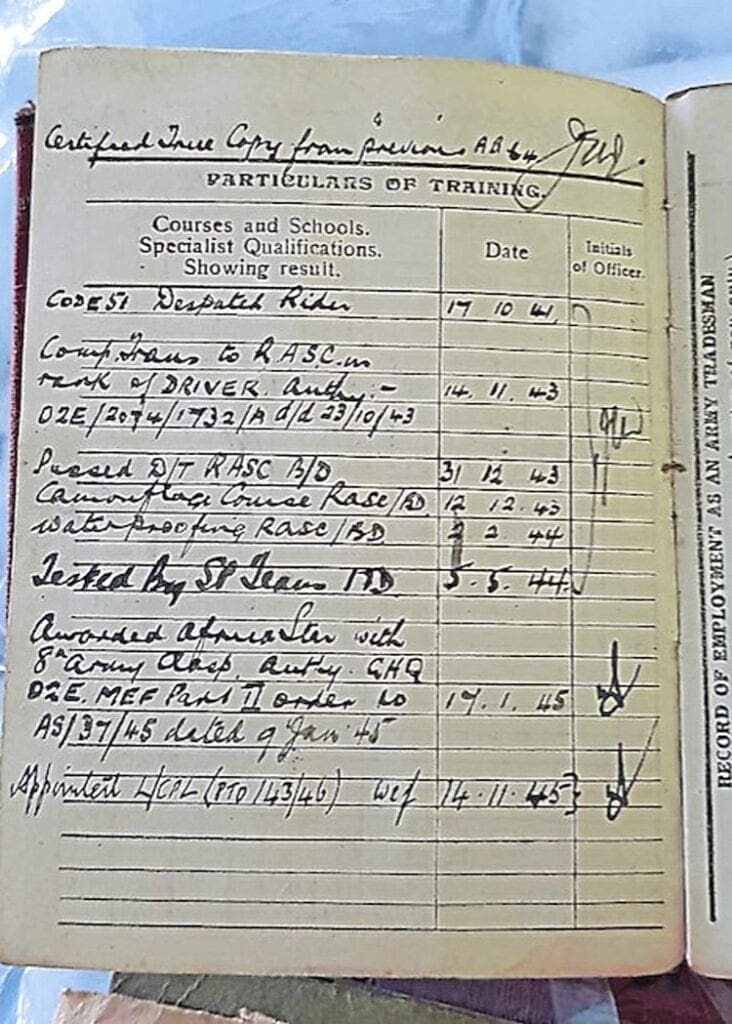 Certified True Copy from previous AB 64
PARTICULARS OF TRAINING.
Courses and Schools.
Specialist Qualifications.
Showing result.
Date
Initials
of Officer.
CODE 51 Despatch Rider 17 10 41.
Comp. Trans to R.A.S.C. in
rank of DRIVER. Authy:- 14. 11. 43
O2E/2074/1732/A d/d 23/10/43
Passed D/T RASC B/D 31 12 43
Camouflage Course RASC/BD 12 12. 43
Waterproofing RASC/BD 2 2. 44
Tested By Team 5. 5. 44.
Awarded Africa Star with
8th Army Clasp. Authy. GHQ
O2E. MEF Part II order No 17. 1. 45
AS/37/45 dated 9 Jan 45
Appointed L/CPL (PTO/143/46) wef 14. 11. 45
RECORD OF EMPLOYMENT AS AN ARMY TRADESMAN